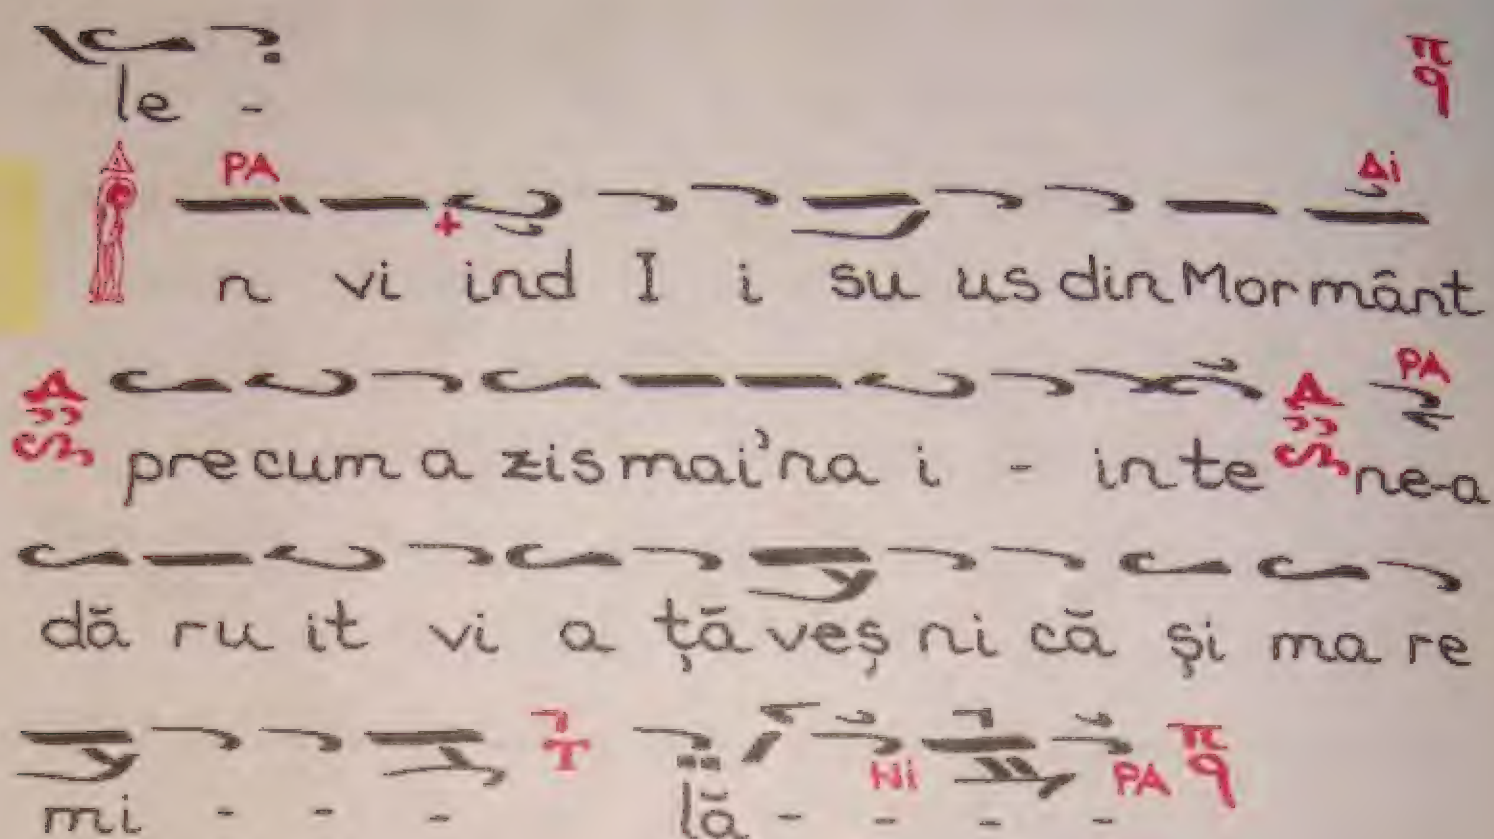 le -
π q
PA Δi
În vi ind I i su us din Mor mânt
PA
pre cum a zis mai'na i - in te ne-a
dă ru it vi a ță veș ni că și ma re
Ni PA π q
mi - - - lă - - - -